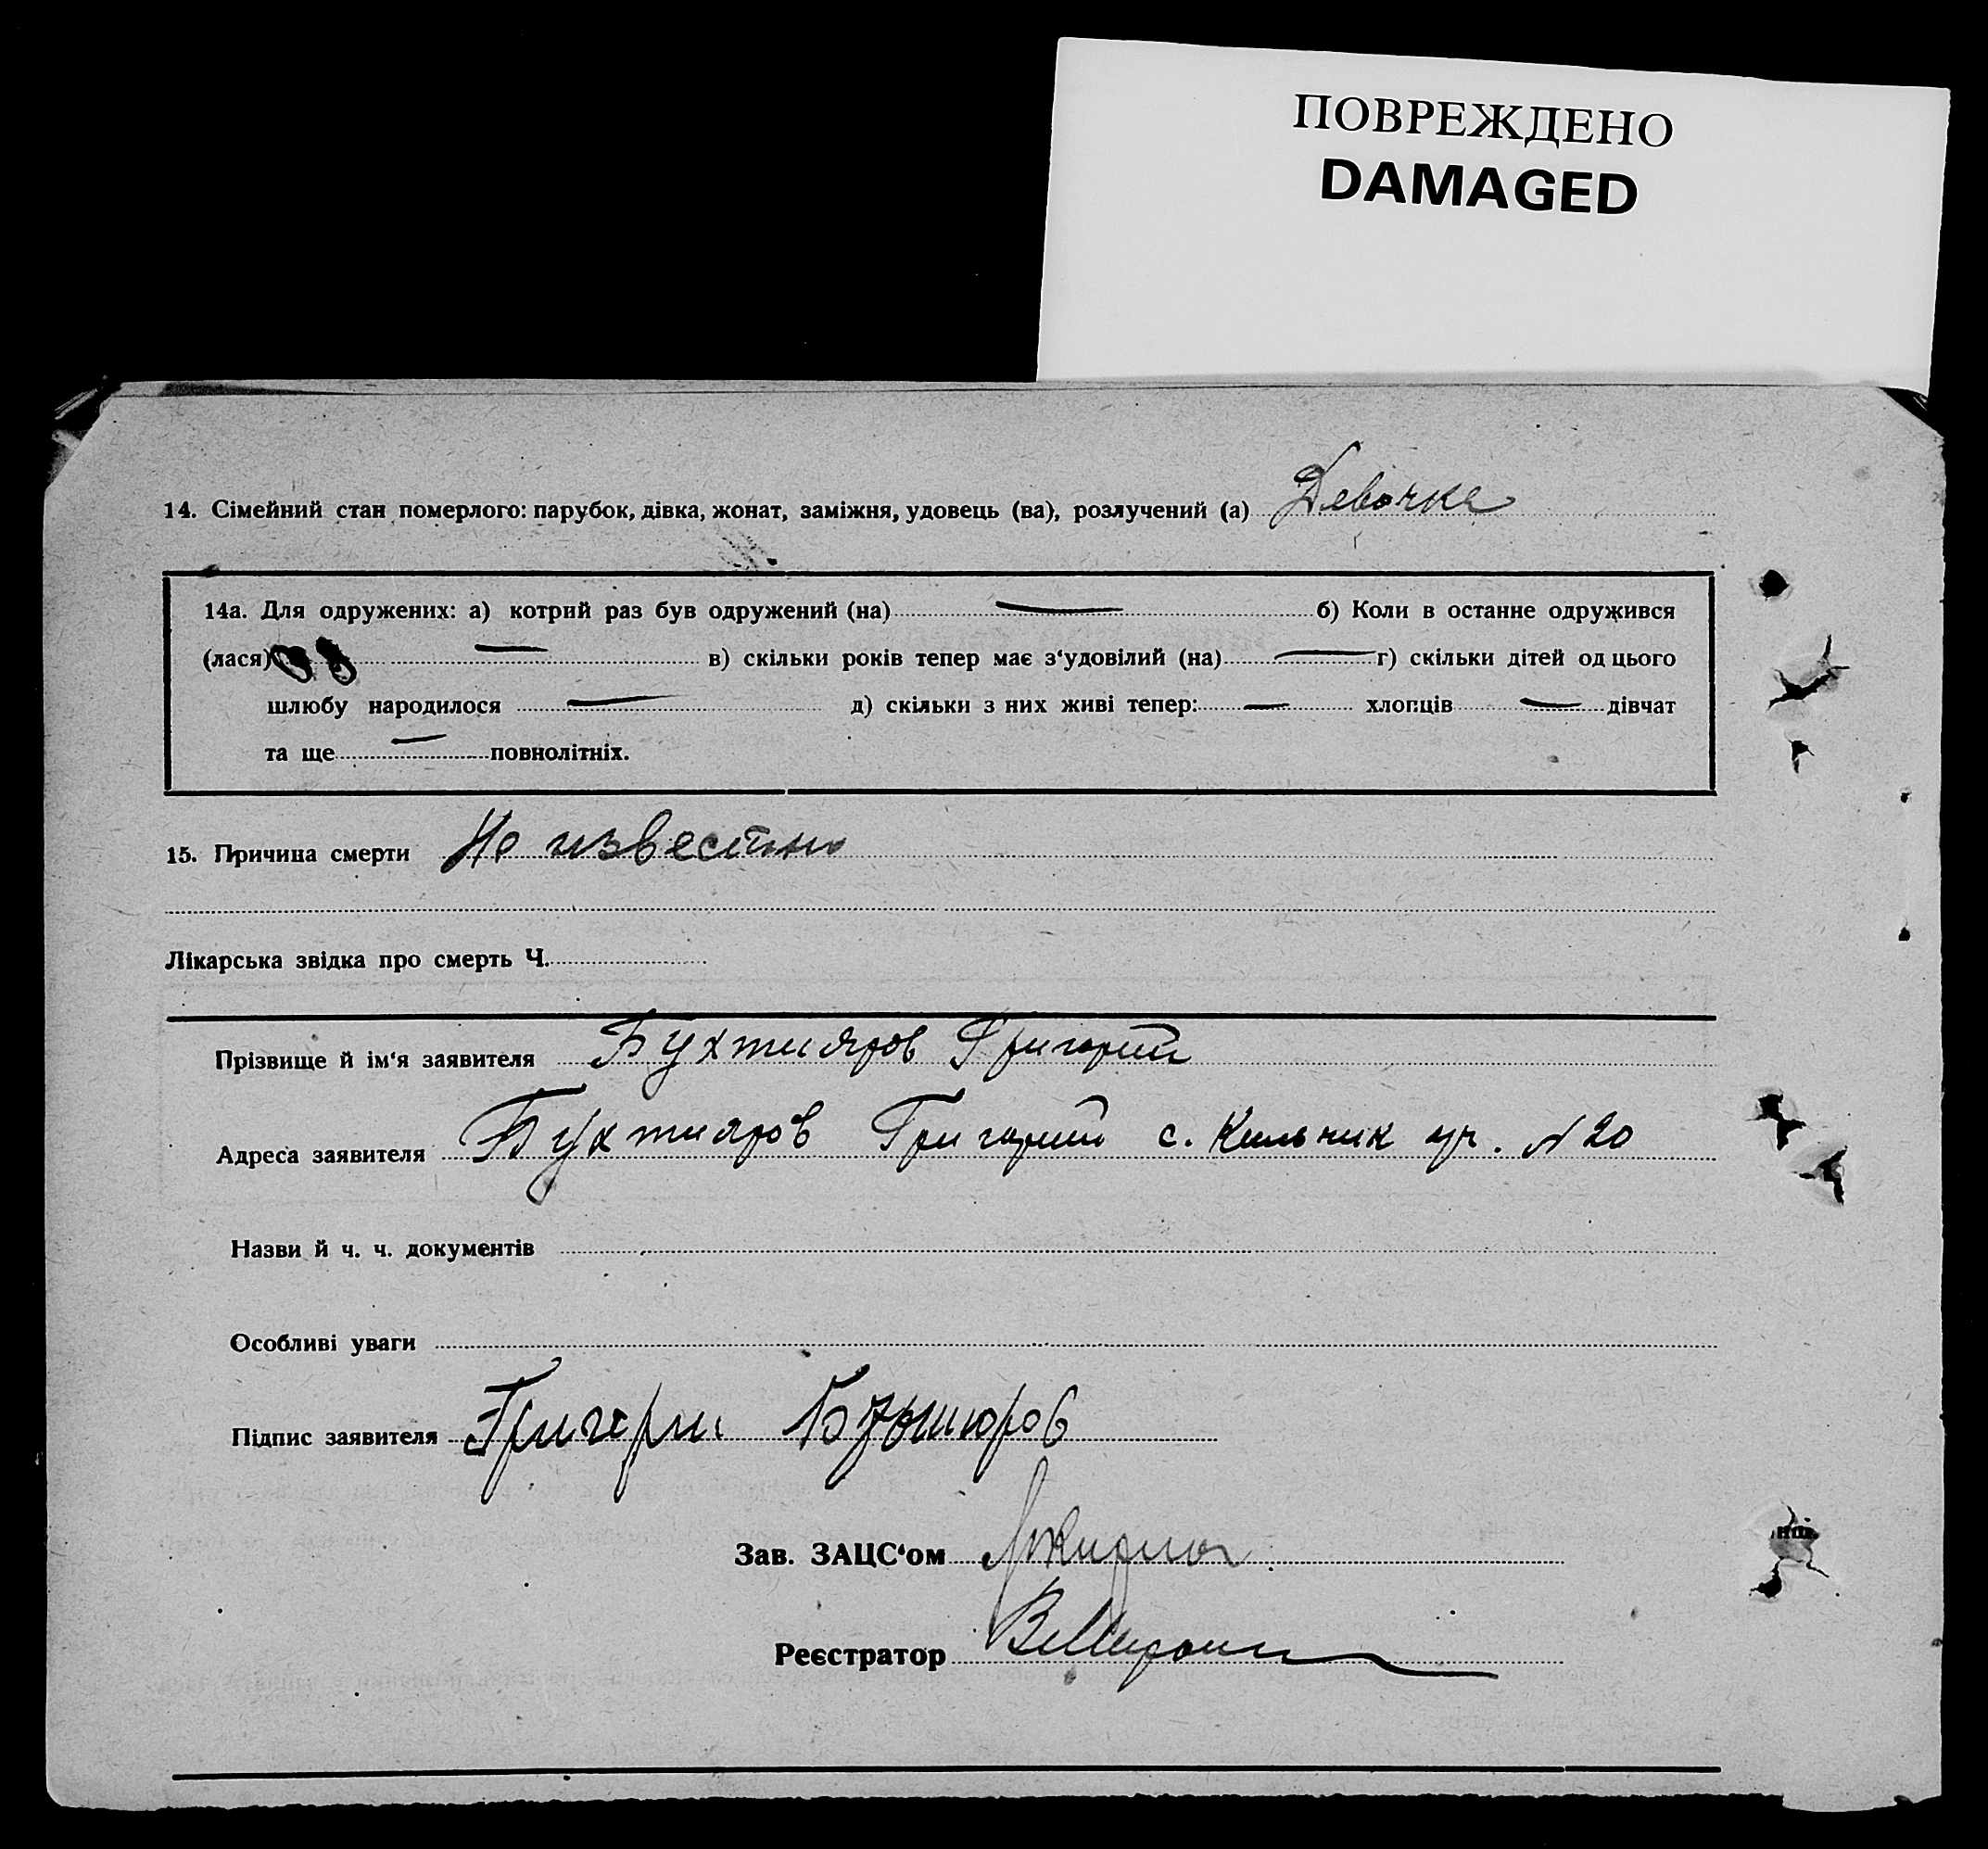 ПОВРЕЖДЕНО
DAMAGED
14. Сімейний стан померлого: парубок, дівка, жонат, заміжня, удовець (ва), розлучений (а) Девочка
14а. Для одружених: а) котрий раз був одружений (на) — б) Коли в останне одружився
(лася) — в) скільки років тепер має з‘удовілий (на) — г) скільки дітей од цього
шлюбу народилося — д) скільки з них живі тепер: — хлопців — дівчат
та ще — повнолітніх.
15. Причина смерти Не известно
Лікарська звідка про смерть Ч.
Прізвище й ім‘я заявителя Бухтияров Григорий
Адреса заявителя Бухтияров Григорий с. Кильчик уч. N 20
Назви й ч. ч. документів
Особливі уваги
Підпис заявителя Григори
Зав. ЗАЦС‘ом
Реєстратор